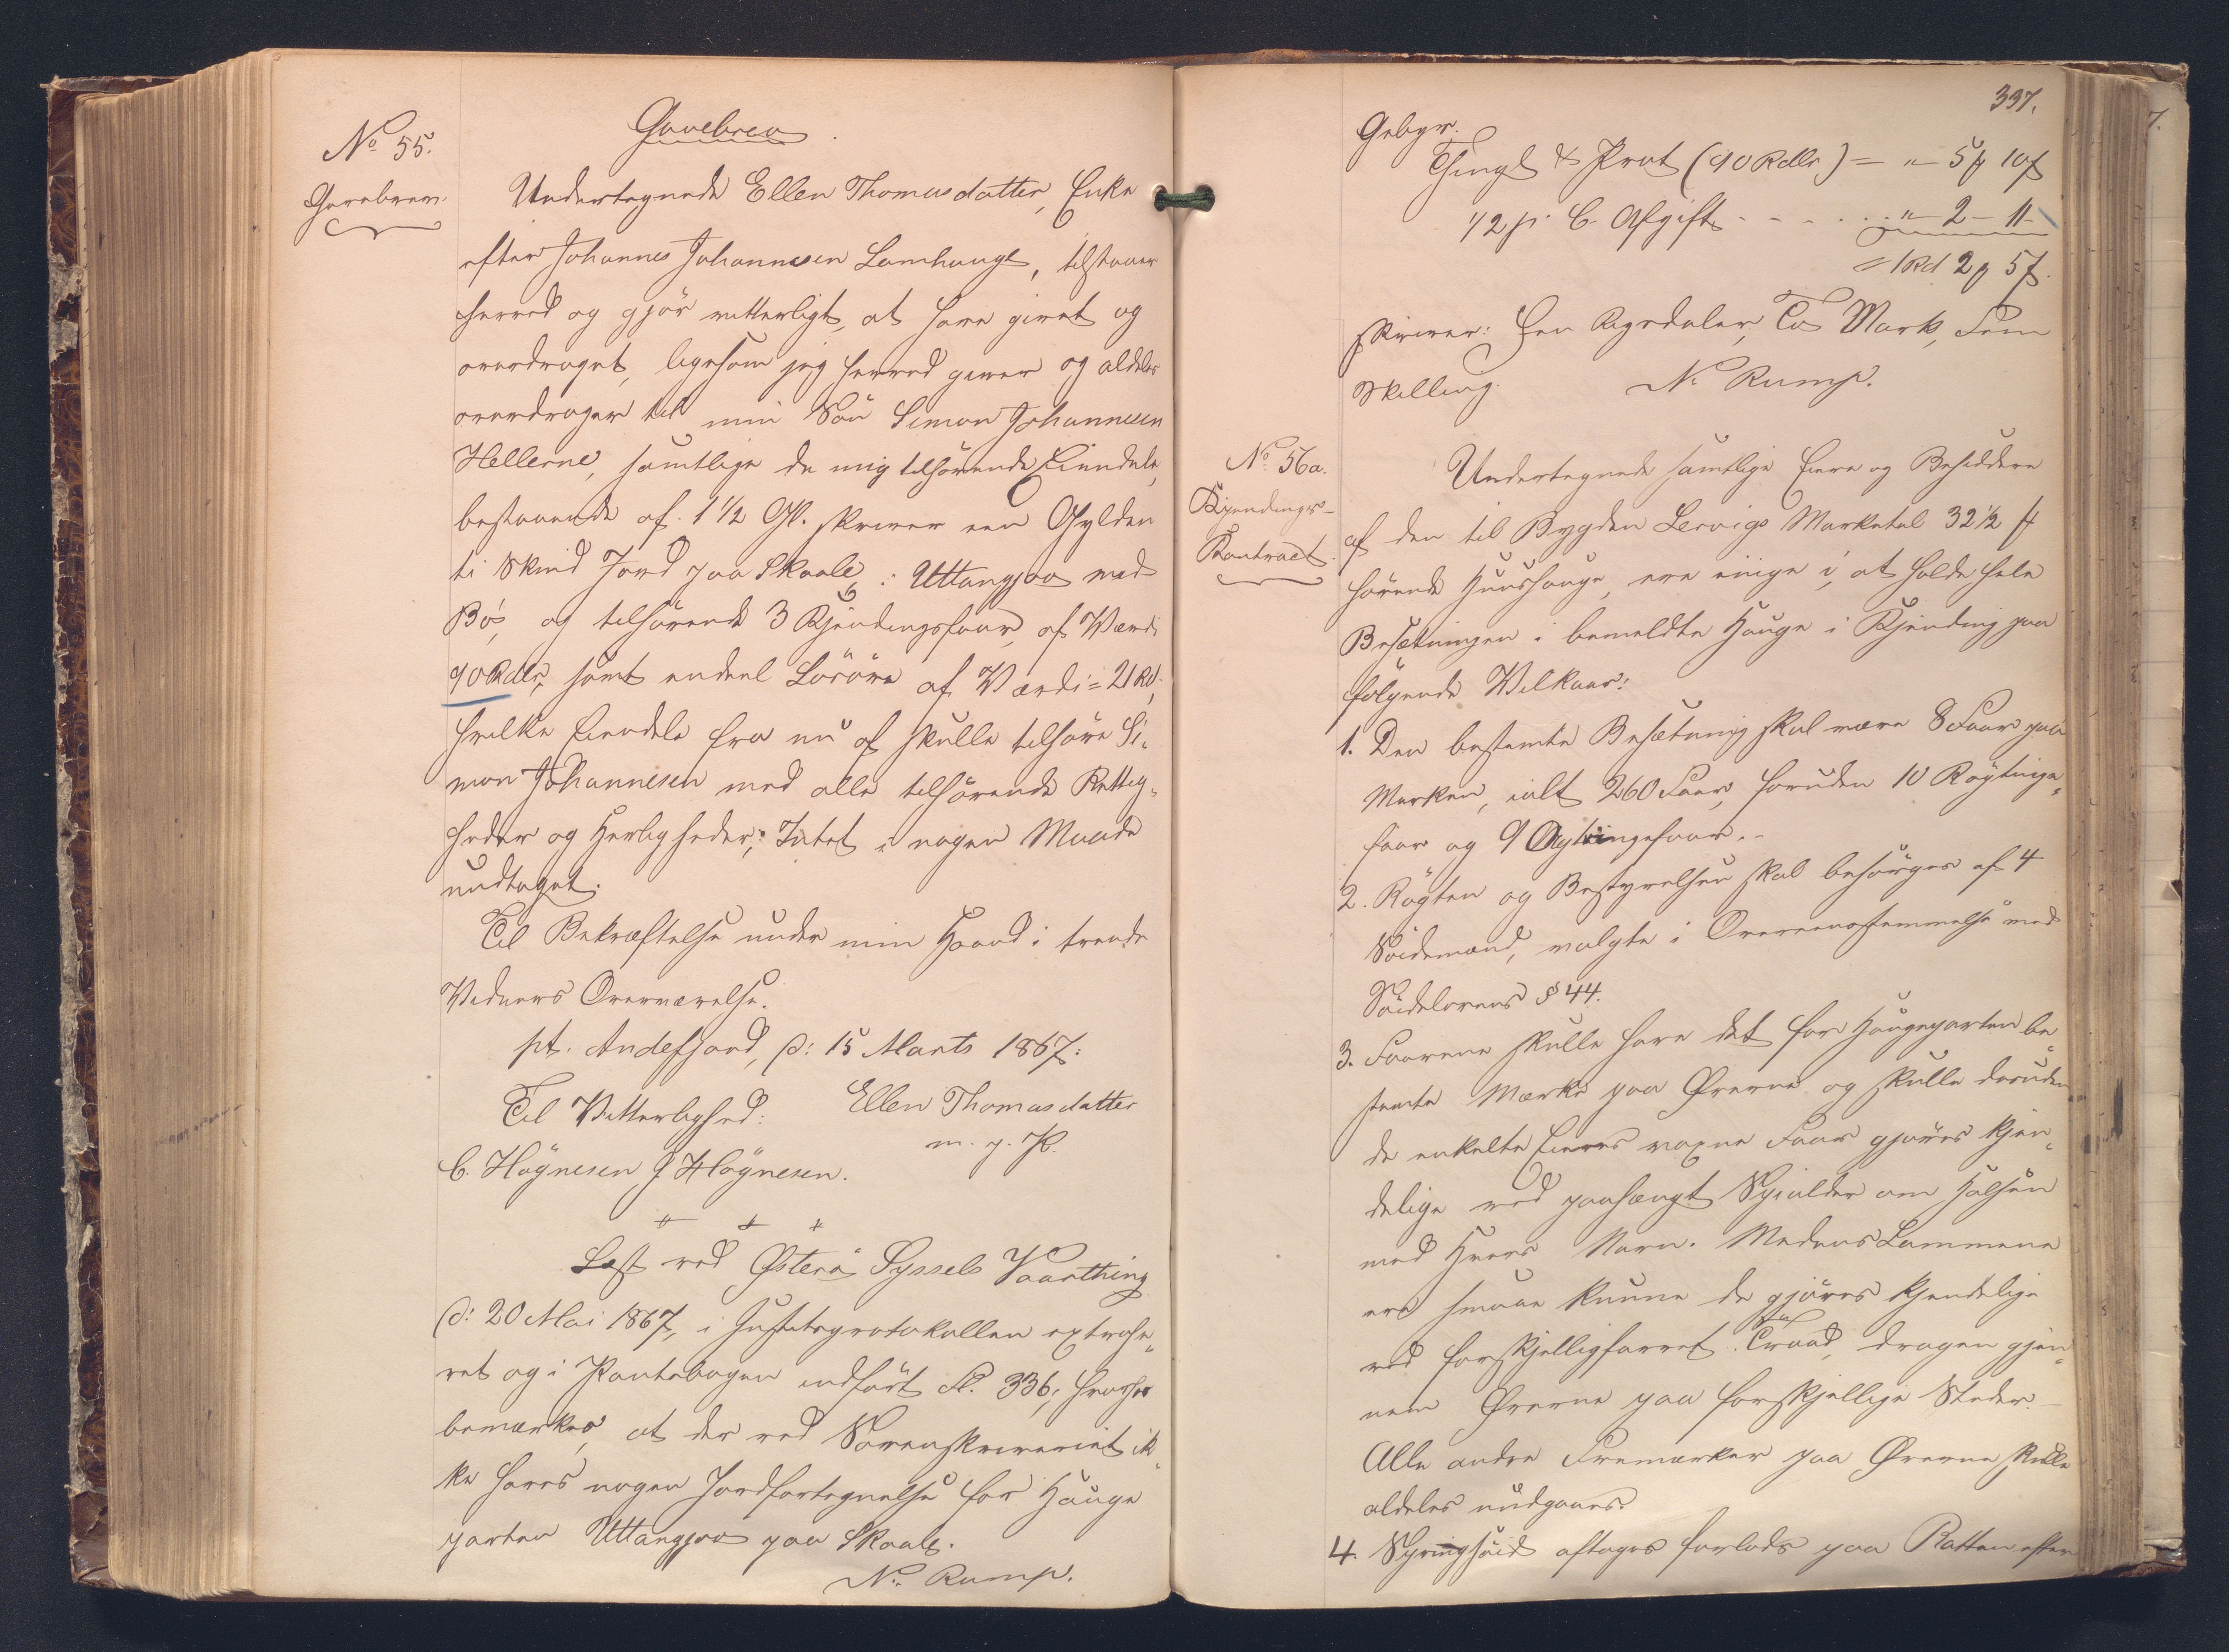 No 55.
Gavebrev.
Gavebrev
Undertegnede Ellen Thomasdatter, Enke
efter Johannes Johannesen Lamhauge, tilstaaer
herved og gjør vitterligt, at have givet og
overdraget, ligesom jeg herved giver og aldeles
overdrager til min Søn Simon Johannesen
Hellerne, samtlige de mig tilhørende Eiendele,
bestaaende af 1 1/2 Gl. skriver een Gylden
ti Skind Jord paa Skaale, : Uttangjaa med
Bø, og tilhørende 3 Kjendingsfaar, af Værdi
90 Rdlr, samt endeel Løsøre af Værdi = 21 Rd,
hvilke Eiendele fra nu af skulle tilhøre Si-
mon Johannesen med alle tilhørende Rettig-
heder og Herligheder, Intet i nogen Maade
undtaget.
Til Bekræftelse under min Haand i trende
Vidners Overværelse.
pt. Andefjord, d: 15 Marts 1867.
Til Vitterlighed: Ellen Thomasdatter
m. p. P.
C. Høgnesen J Høgnesen.
+ + +
Læst ved Østerø Syssels Vaarthing
d: 20 Mai 1867, i Justitsprotokollen extrahe-
ret og i Pantebogen indført Fl. 336, hvorhos
bemærkes, at der ved Sorenskriveriet ik-
ke haves nogen Jordfortegnelse for Hauge
parten Uttangjaa paa Skaale.
N. Rump.
337.
Gebyr.
Thingl & Prot (90 Rdlr) = " 5 β 10 β
1/2 p. C. Afgift - - - . . . " - 2 - 11 -
= 1 Rd 2 β 5 β.
skriver: Een Rigsdaler, To Mark, Fem
Skilling. N. Rump.
No 56a.
Kjendings-
Kontract.
Undertegnede samtlige Eiere og Besiddere
af den til Bygden Lervigs Marketal 32 1/2 #
hørende Huushauge, ere enige i, at holde hele
Besætningen i bemeldte Hauge i Kjending paa
følgende Vilkaar:
1. Den bestemte Besætning skal være 8 Faar paa
Marken, ialt 260 Faar, foruden 10 Røgtinga-
faar og 9 faar. -
2. Røgten og Bestyrelsen skal besørges af 4
Søidemænd, valgte i Overeensstemmelse med
Søidelovens § 44.
3. Faarene skulle have det for Haugeparten be-
stemte Mærke paa Ørerne og skulle desuden
de enkelte Eieres voxne Faar gjøres kjen-
delige ved paahængt Spialder om Halsen
med Hvers Navn. Medens Lammene
ere smaae kunne de gjøres kjendelige
ved forskjelligfarvet Traad, dragen gjen-
nem Ørerne paa forskjellige Steder. -
Alle andre Fremærker paa Ørerne skulle
aldeles undgaaes.
4. Springsøid aftages forlods paa Ratten efter